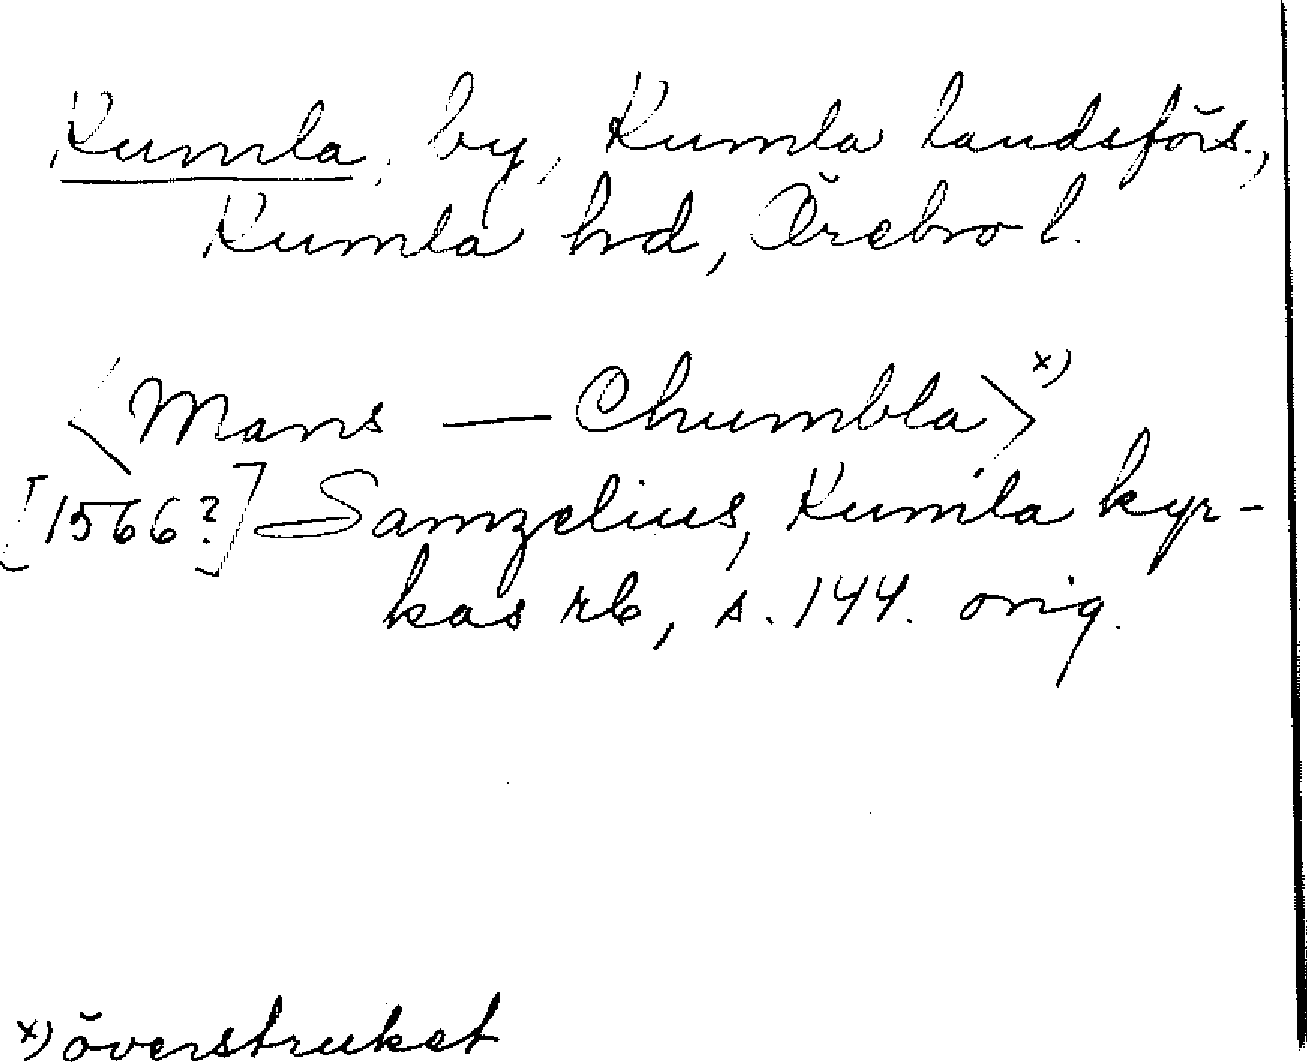 Kumla, by, Kumla landsförs.,
Kumla hd, Örebro l.
<Mans — Chumbla> x)
[1566?] Samzelius, Kumla kyr-
kas rb, s. 144. orig.
x) överstruket